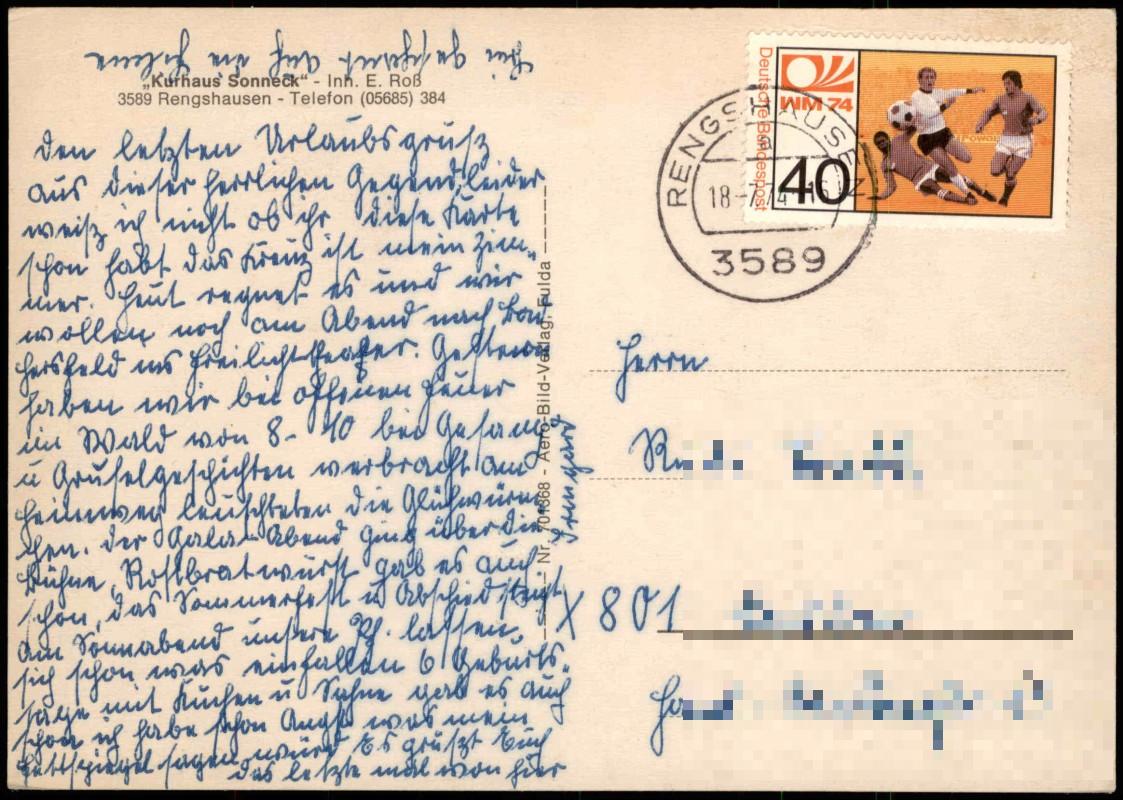 „Kurhaus Sonneck“ - Inh. E. Roß
3589 Rengshausen - Telefon (05685) 384
den letzten Urlaubsgruß
aus dieser herrlichen Gegend, leider
weiß ich nicht ob ihr diese Karte
schon habt das Kreuz ist mein Zim-
mer. Heut regnet es und wir
wollen noch am Abend nach Bad
Hersfeld ins Freilichttheater. Gestern
haben wir bei offenen Feuer
im Wald von 8-10 bei Gesang
u Gruselgeschichten verbracht am
Heimweg leuchteten die Glühwürm
chen. Der Gala-Abend ging über die
Bühne, Rostbratwürst gab es auch
schon, das Sommerfest u Abschied steigt
am Sonnabend unsere Ph. lassen
sich schon was einfallen 6 Geburts-
tage mit Kuchen u Sahne gab es auch
schon ich habe schon Angst was mein
sagen würd Es grüßt Euch
das letzte mal von hier
Irmgard
Nr. 701368 - Aero-Bild-Verlag, Fulda
Deutsche Bundespost
WM 74
40
RENGSHAUSEN
18.-7.74
3589
Herrn
X 801